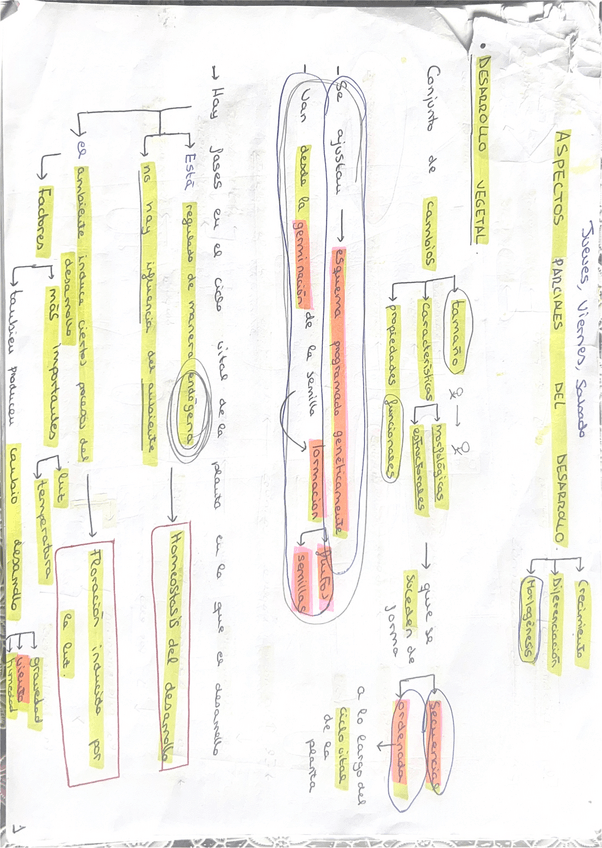 Jueves, Viernes, Sabado
ASPECTOS PARCIALES DEL DESARROLLO
Crecimiento
Diferenciación
Morfogénesis
• DESARROLLO VEGETAL.
Conjunto de cambios
tamaño
características
morfológicas
estructurales
propiedades funcionales
que se
suceden de
forma
secuencial
ordenada
a lo largo del
ciclo vital
de la
planta
- Se ajustan → esquema programado genéticamente
- Van desde la germinación de la semilla
formación
frutos
semillas
→ Hay fases en el ciclo vital de la planta en la que el desarrollo
Está regulado de manera endógena → Homeostasis del desarrollo
no hay influencia del ambiente
el ambiente induce ciertos procesos del
desarrollo
Floración inducida por
la luz.
Factores
más importantes
luz
temperatura
también producen cambio desarrollo
gravedad
viento
humedad
1